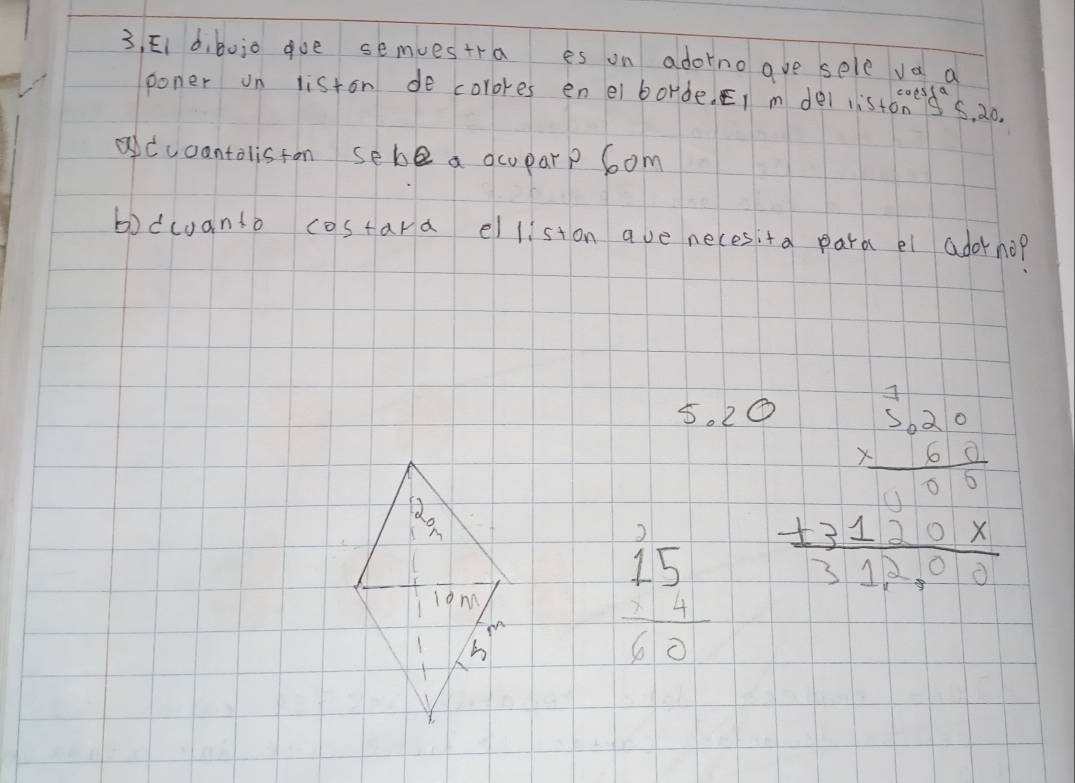 3, El dibujo que semuestra es un adorno que sele va a
poner un liston de colores en el borde. El m del liston cuesta $ 5,20.
a) ¿cuantoliston sebe a ocupar? 60m
b) ¿cuanto costara el liston que necesita para el adorno?
5.20
1
5,20
x 60
000
+3120x
312,00
20m
10m
15m
2
15
x 4
60